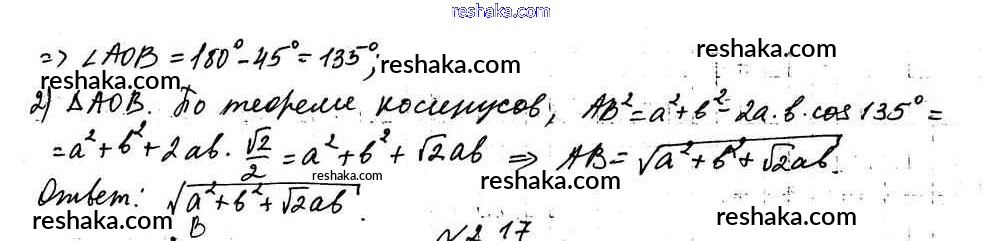 reshaka.com
=> ∠AOB = 180° - 45° = 135°; reshaka.com reshaka.com
reshaka.com reshaka.com
2) ΔAOB. По теореме косинусов, AB² = a² + b² - 2a·b·cos 135° =
= a² + b² + 2ab · √2/2 = a² + b² + √2ab => AB = √(a² + b² + √2ab)
reshaka.com reshaka.com
Ответ: √(a² + b² + √2ab).
reshaka.com reshaka.com
B №2.17